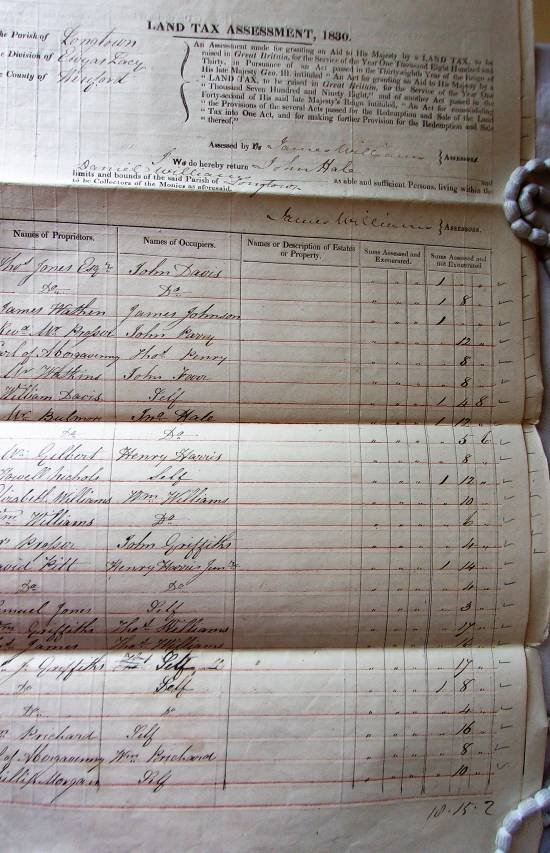 LAND TAX ASSESSMENT, 1830.
the Parish of Longtown
Division of Ewyas Lacy
County of Hereford
An Assessment made for granting an Aid to His Majesty by a LAND TAX, to be
raised in Great Britain, for the Service of the Year One Thousand Eight Hundred and
Thirty, in Pursuance of an Act passed in the Thirty-eighth Year of the Reign of
His late Majesty Geo. III. intituled "An Act for granting an Aid to His Majesty by a
"LAND TAX to be raised in Great Britain, for the Service of the Year One
"Thousand Seven Hundred and Ninety Eight," and of another Act passed in the
Forty-second of His said late Majesty's Reign, intituled, "An Act for consolidating
"the Provisions of the several Acts passed for the Redemption and Sale of the Land
"Tax into One Act, and for making further Provision for the Redemption and Sale
"thereof."
Assessed by James Williams } Assessors.
We do hereby return John Hale
Daniel Williams and
limits and bounds of the said Parish of Longtown as able and sufficient Persons, living within the
to be Collectors of the Monies as aforesaid.
James Williams } Assessors.
Names of Proprietors. Names of Occupiers. Names or Description of Estates or Property. Sums Assessed and Exonerated. Sums Assessed and not Exonerated
Thos Jones Esqr John Davis 1 " "
Do Do 1 8 "
James Watkin James Johnson 1 " "
Revd Mr Prosser John Parry " 12 "
Earl of Abergavenny Thos Penry " 8 "
Mr Watkins John " 8 "
William Davis Self 1 4 8
Mr Bulmer Jno Hale 1 12 "
Do Do " 5 6
Wm Gilbert Henry Harris " 8 "
Howell Nichols Self 1 12 "
Elizabeth Williams Wm Williams " 10 "
Wm Williams Do " 6 "
Prosser John Griffiths " 4 "
David Pitt Henry Harris Junr 1 14 "
Do Do " 4 "
Samuel Jones Self " 3 "
Wm Griffiths Thos Williams " 17 "
James Thos Williams
J Griffiths Self " 17 "
Do Self 1 8 "
Do Do " 4 "
Prichard Self " 16 "
of Abergavenny Wm Prichard " 8 "
Phillip Morgan Self " 10 "
18-15-2